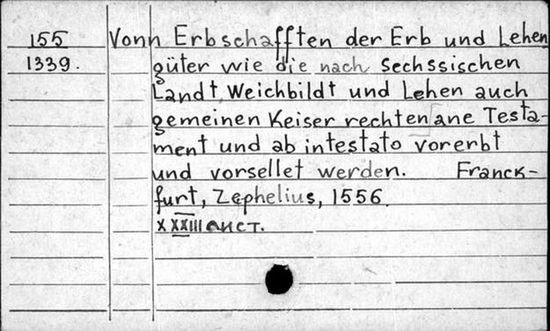 155 Vonn Erbschafften der Erb und Lehen
1339. güter wie die nach Sechssischen
Landt Weichbildt und Lehen auch
gemeinen Keiser rechten ane Testa-
ment und ab intestato vorerbt
und vorsellet werden. Franck-
furt, Zephelius, 1556
XXXIII лист.